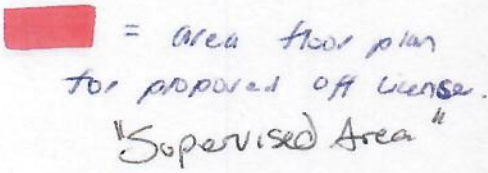 = area floor plan
for proposed off license.
"Supervised Area"